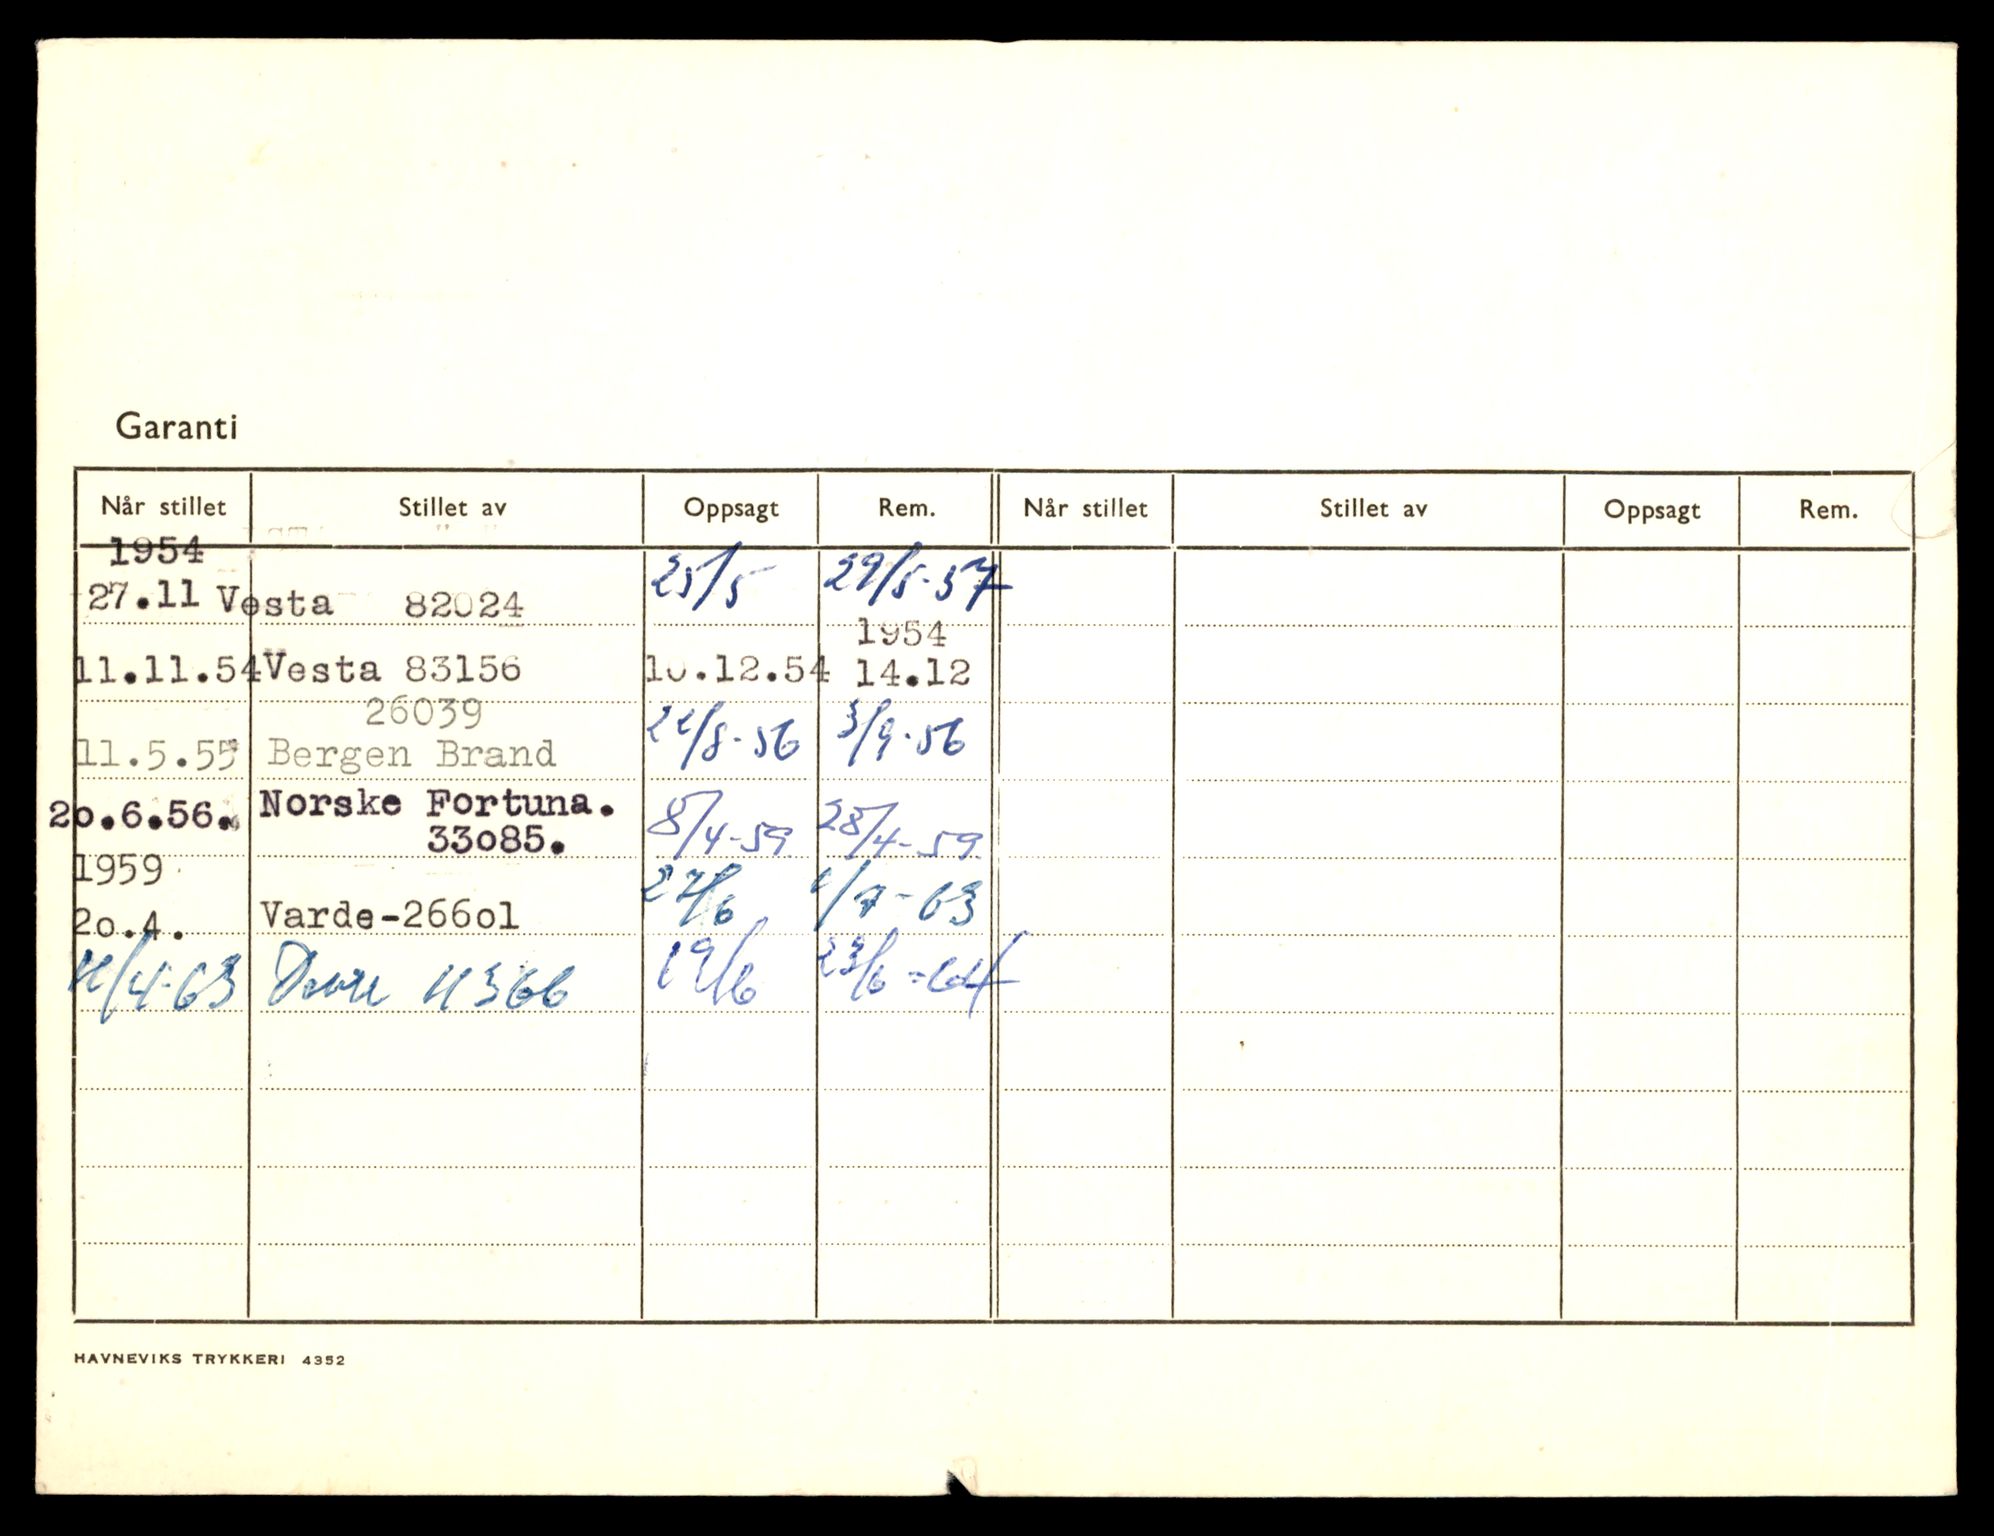 Garanti
Når stillet Stillet av Oppsagt Rem. Når stillet Stillet av Oppsagt Rem.
1954
27.11 Vesta 82024 25/5 29/5-57
1954
11.11.54 Vesta 83156 10.12.54 14.12
26039
11.5.55 Bergen Brand /8-56 3/9-56
2o.6.56. Norske Fortuna.
33o85. 8/4-59 28/4-59
1959
2o.4. Varde-266ol 27/6 1/7-63
/4-63 19/6 23/6-64
HAVNEVIKS TRYKKERI 4352